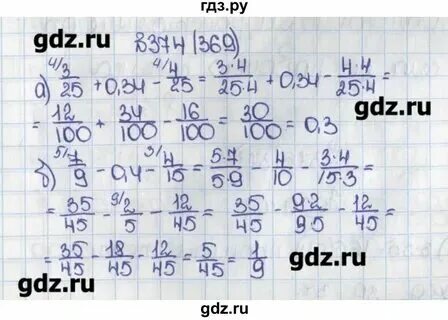 гдз.ру
gdz.ru
В 374 (369)
gdz.ru
а) ⁴⁄3/25 + 0,34 - ⁴⁄4/25 = 3·4/25·4 + 0,34 - 4·4/25·4 =
= 12/100 + 34/100 - 16/100 = 30/100 = 0,3
gdz.ru
б) ⁵⁄7/9 - 0,4 - ³⁄4/15 = 5·7/5·9 - 4/10 - 3·4/15·3 =
= 35/45 - ⁹⁄2/5 - 12/45 = 35/45 - 9·2/9·5 - 12/45 =
= 35/45 - 18/45 - 12/45 = 5/45 = 1/9
gdz.ru
gdz.ru
gdz.ru